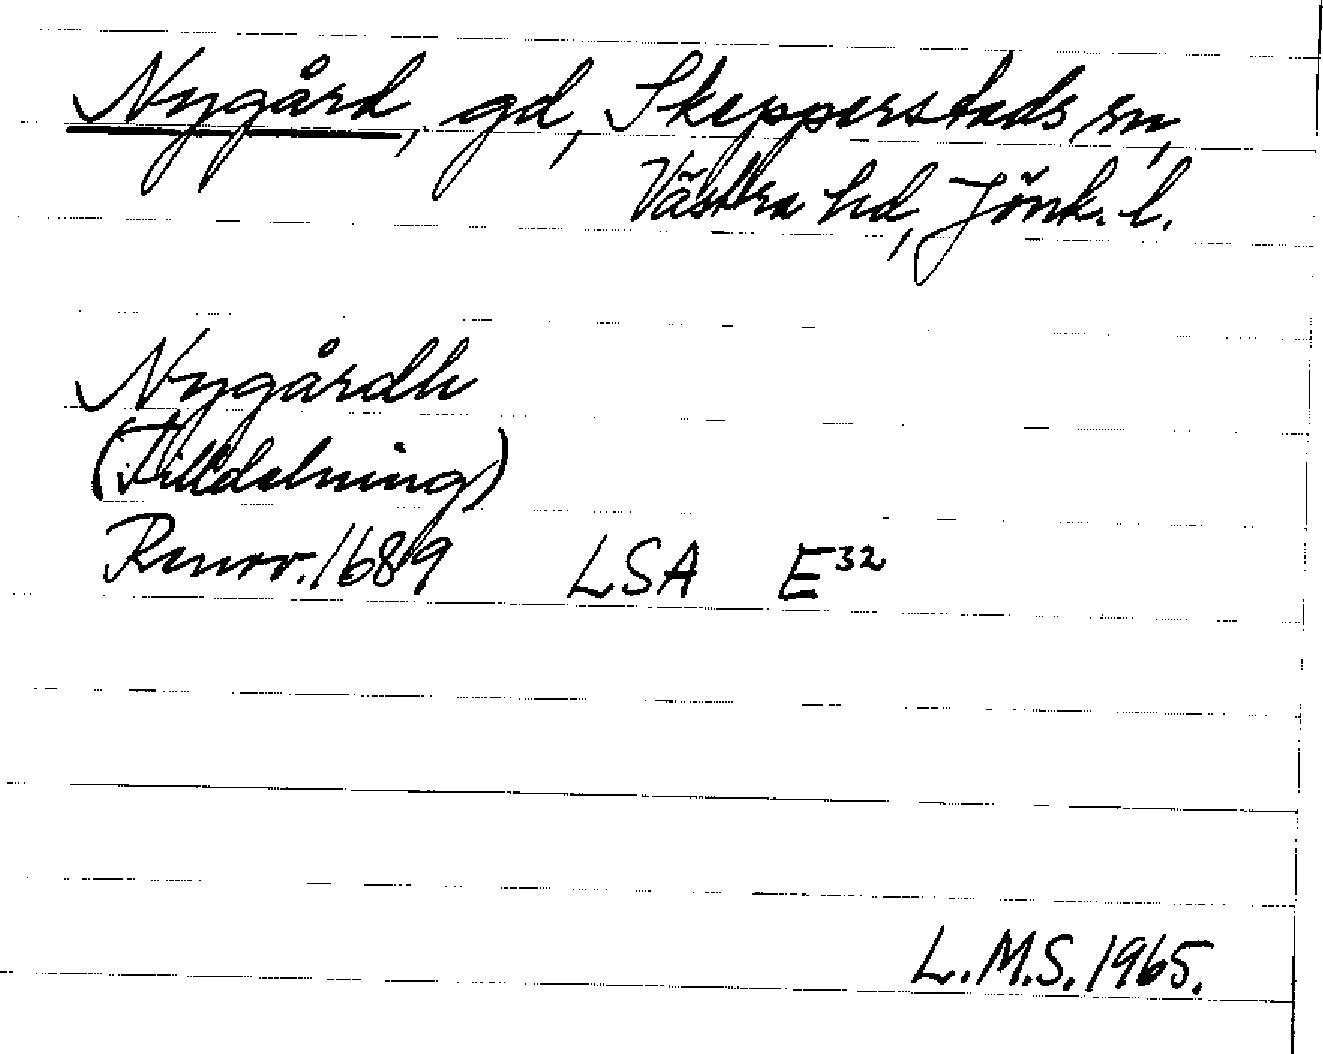 Nygård, gd, Skepperstads sn,
Västra hd, Jönk. l.
Nygårdh
(Tilldelning)
Renov. 1689 LSA E³²
L.M.S. 1965.